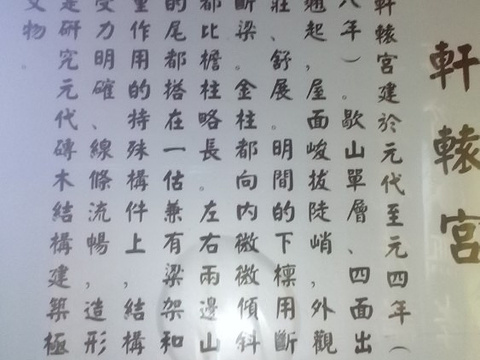 軒轅宮
軒轅宮建於元代至元四年（
八年）。歇山單層、四面出
翹起，屋面峻拔陡峭，外觀
莊、舒展。明間的下檁用斷
斷梁。金柱都向內微微傾斜
都比檐柱略長。左右兩邊山
的尾都搭在一估兼有梁架和
重作用的特殊構件上，結構
受力明確、線條流暢，造形
是研究元代磚木結構建築極
文物。